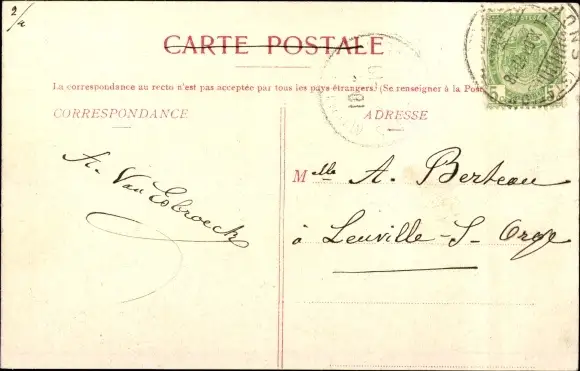 2/4
CARTE POSTALE
La correspondance au recto n'est pas acceptée par tous les pays étrangers. (Se renseigner à la Post
CORRESPONDANCE
ADRESSE
A. Van Esbroeck
Mlle A. Berteau
à Leuville-S-Orge
5
5